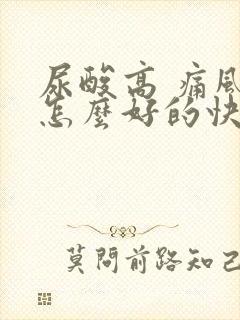 尿酸高 痛風
怎麼好的快
莫問前路知己